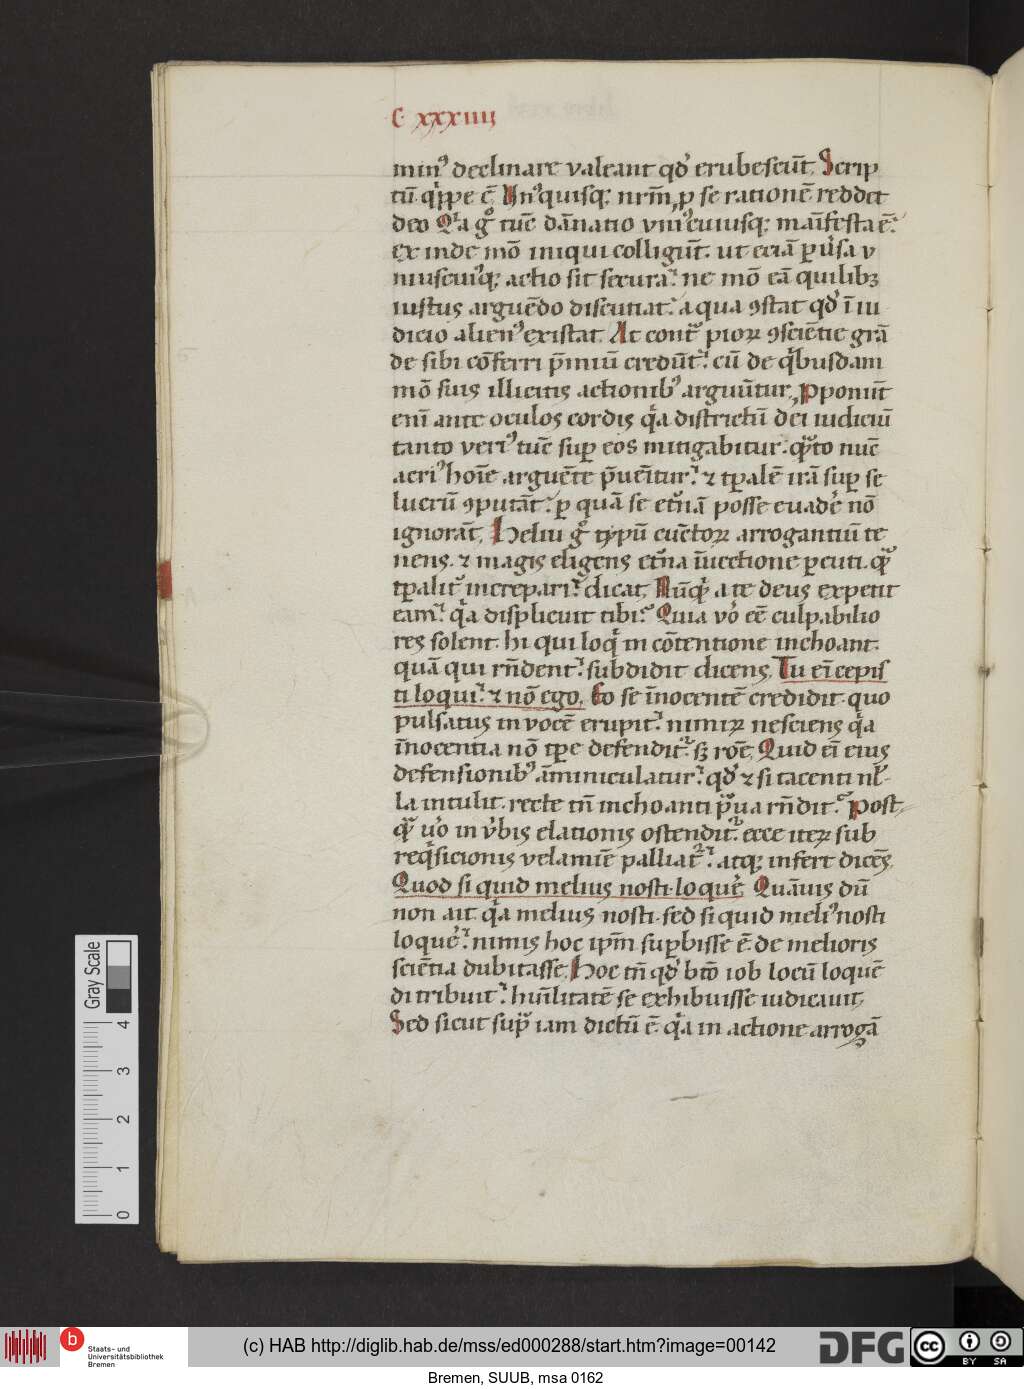 C xxxiiij
min⁹ declinare valeant qd̕ erubescūt. Scrip
tū q̇ppe ē. Vn⁹quisq; nrm̄ p se rationē reddet
deo Qͥa gͦ tūc dānatio vni⁹cuiusq; maīfesta ē.
ex inde mō iniqui colligūt. ut eciā puͥsa v
niuscui⁹q; actio sit secura. ne mō eā quilibꝫ
iustus arguēdo discutiat. a qua ꝯstat qd̕ ī iu
dicio alien⁹ existat. At cont̄ pioꝝ ꝯsciētie grā
de sibi cōferri p̄miū credūt. cū de qͥbusdam
mō suis illicitis actionib⁹ arguūtur. Pponūt
enī ante oculos cordis qͥa districtū dei iudiciū
tanto veri⁹ tūc sup eos mitigabitur. qͣto nūc
acri⁹ hoīe arguēte p̄uēitur. ⁊ tpalē irā sup se
lucrū ꝯputāt. p quā se et̄nā posse euade̕ nō
ignorāt. Heliu gͦ typū cūctoꝝ arrogantiū te
nens. ⁊ magis eligens et̄na īuectione pcuti. qͣ
tpalit̕ increpari. dicat. Nūqͥ a te deus expetit
eam. qͥa displicuit tibi. Quia vo̕ eē culpabilio
res solent. hi qui loqͥ in cōtentione inchoant.
quā qui rn̄dent. subdidit dicens. Tu eī cepis
ti loqui. ⁊ nō ego. Eo se īnocentē credidit. quo
pulsatus in vocē erupit. nimiꝝ nesciens qͥa
īnocentia nō tpe defendit̕. sꝫ roē. Quid eī eius
defensionib⁹ āminiculatur. qd̕ ⁊ si tacenti nl̄
la intulit. recte tn̄ inchoanti pͣua rn̄dit. Post
qͣ uo̕ in v̕bis elationis ostendit̕. ecce iteꝝ sub
reqͥsicionis velamīe palliat̕. atq; infert dicēs.
Quod si quid melius nosti. loque̕. Quāuis dū
non ait. qͥa melius nosti. sed si quid meli⁹ nosti
loque̕. nimis hoc ipm̄ supbisse ē. de melioris
sciētia dubitasse. Hoc tn̄ qd̕ btō iob locū loquē
di tribuit. huīlitatē se exhibuisse iudicauit.
Sed sicut supͣ iam dictū ē. qͥa in actione arrogā
Gray Scale
4
3
2
1
0
b Staats- und
Universitätsbibliothek
Bremen
(c) HAB http://diglib.hab.de/mss/ed000288/start.htm?image=00142
DFG
cc BY SA
Bremen, SUUB, msa 0162